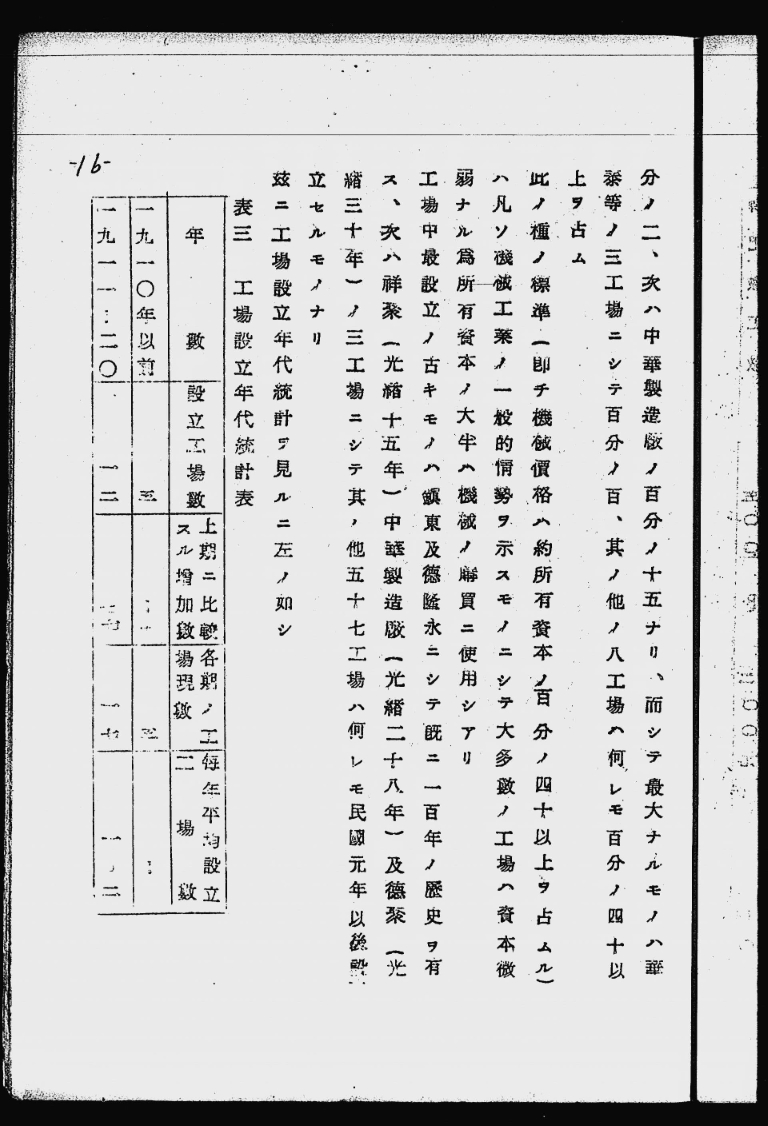 -16-
分ノ二、次ハ中華製造廠ノ百分ノ十五ナリ、而シテ最大ナルモノハ華
泰等ノ三工場ニシテ百分ノ百、其ノ他ノ八工場ハ何レモ百分ノ四十以
上ヲ占ム
此ノ種ノ標準(即チ機械價格ハ約所有資本ノ百分ノ四十以上ヲ占ムル)
ハ凡ソ機械工業ノ一般的情勢ヲ示スモノニシテ大多數ノ工場ハ資本微
弱ナル爲所有資本ノ大半ハ機械ノ購買ニ使用シアリ
工場中最設立ノ古キモノハ鎭東及德隆永ニシテ既ニ一百年ノ歷史ヲ有
ス、次ハ祥聚(光緖十五年)中華製造廠(光緖二十八年)及德聚(光
緖三十年)ノ三工場ニシテ其ノ他五十七工場ハ何レモ民國元年以後設
立セルモノナリ
玆ニ工場設立年代統計ヲ見ルニ左ノ如シ
表三 工場設立年代統計表
年數 設立工場數 上期ニ比較スル增加數 各期ノ工場現數 每年平均設立工場數
一九一〇年以前 五 五
一九一一:二〇 一二 一七 一.二